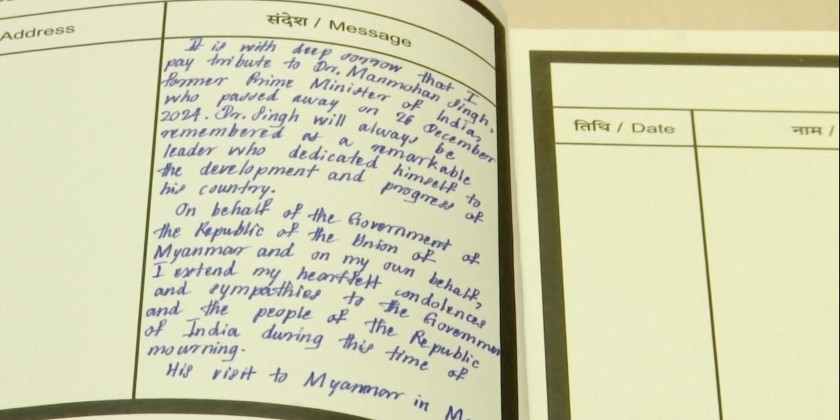 Address
संदेश / Message
It is with deep sorrow that I
pay tribute to Dr. Manmohan Singh,
Former Prime Minister of India,
who passed away on 26 December
2024. Dr. Singh will always be
remembered as a remarkable
leader who dedicated himself to
the development and progress of
his country.
On behalf of the Government of
the Republic of the Union of
Myanmar and on my own behalf,
I extend my heartfelt condolences
and sympathies to the Governmen
and the people of the Republic
of India during this time of
mourning.
His visit to Myanmar in M
तिथि / Date
नाम /